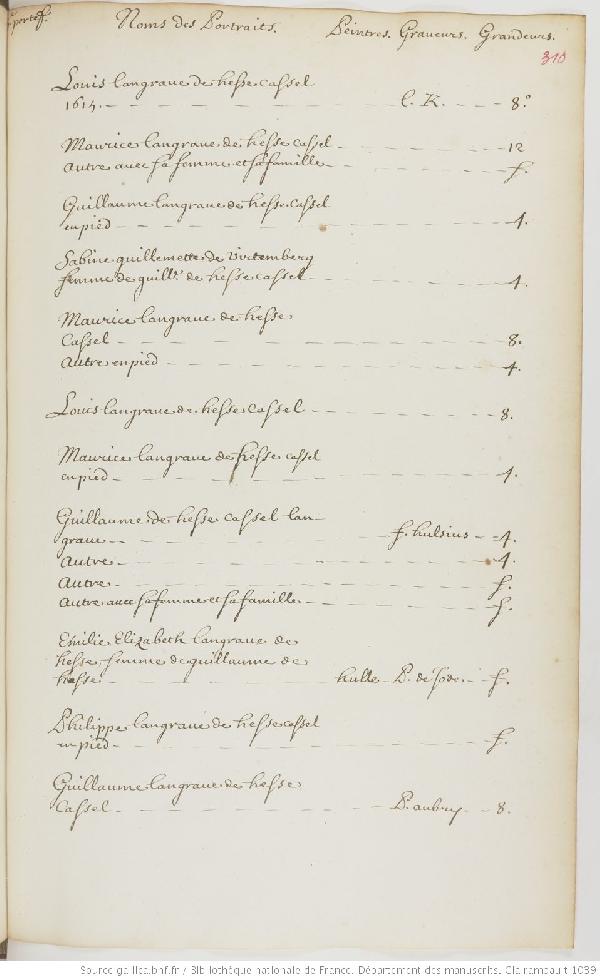 portef. Noms des Portraits. Peintres. Graveurs. Grandeurs.
310
Louis langrave de hesse cassel
1614. l. K. 8.°
Maurice langrave de hesse cassel 12
autre avec sa femme et sa famille f.
Guillaume langrave de hesse cassel
en pied 4.
Sabine guillemette de Virtemberg
femme de guill.e de hesse cassel 4.
Maurice langrave de hesse
Cassel 8.
autre en pied 4.
Louis langrave de hesse Cassel 8.
Maurice langrave de hesse cassel
en pied 4.
Guillaume de hesse cassel lan-
grave f. hulsius 4.
autre 4.
autre f.
autre avec sa femme et sa famille f.
Emilie Elizabeth langrave de
hesse femme de guillaume de
hesse hulle P. de Jode. f.
Philippe langrave de hesse cassel
en pied f.
Guillaume langrave de hesse
Cassel P. aubry 8.
Source gallica.bnf.fr / Bibliothèque nationale de France. Département des manuscrits. Clairambault 1039